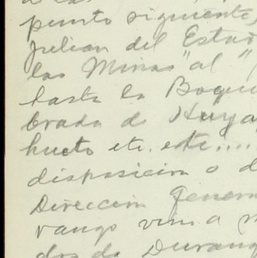 punto siguiente,
Julian del Estad
las Minas" al "
hasta la Boqui
brada de Huya
hueto etc. etc....
disposicion o d
Direccion Genera
rango vim a m
dos de Durang